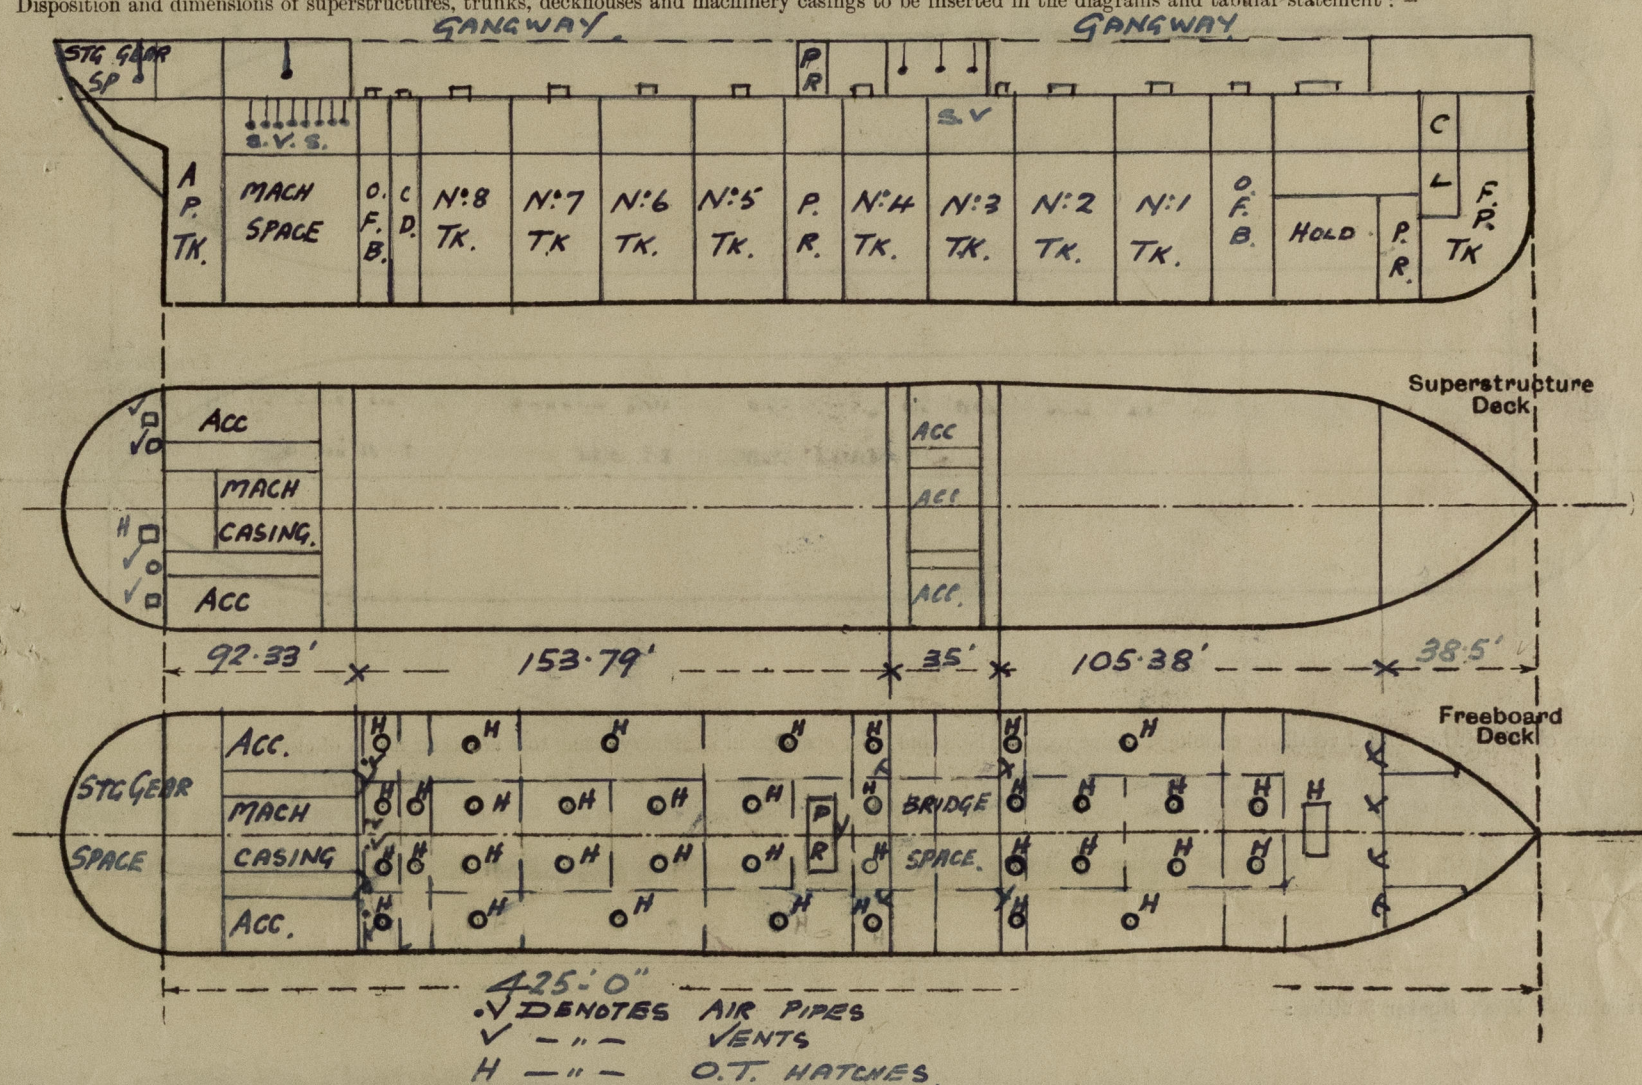 Disposition and dimensions of superstructures, trunks, deckhouses and machinery casings to be inserted in the diagrams and tabular statement :—
GANGWAY. GANGWAY
STG GEAR
SP
P
R
S.V.S.
S.V
A
P.
TK.
MACH
SPACE
O.
F.
B.
C
D.
Nº8
TK.
Nº7
TK
Nº6
TK.
Nº5
TK.
P.
R.
Nº4
TK.
Nº3
TK.
Nº2
TK.
Nº1
TK.
O.
F.
B.
HOLD
P.
R.
C
L
F.
P.
TK
Superstructure
Deck
ACC
MACH
CASING.
ACC
H
ACC
ACC
ACC.
92.33' 153.79' 35' 105.38' 38.5'
Freeboard
Deck
STG GEAR
SPACE
ACC.
MACH
CASING
ACC.
H H H H H H H
H H H H H H H H H H H H
P
R
BRIDGE
SPACE.
H H H H H H H H H H H
H H H H H H H
425'-0"
.V DENOTES AIR PIPES
V — " — VENTS
H — " — O.T. HATCHES.